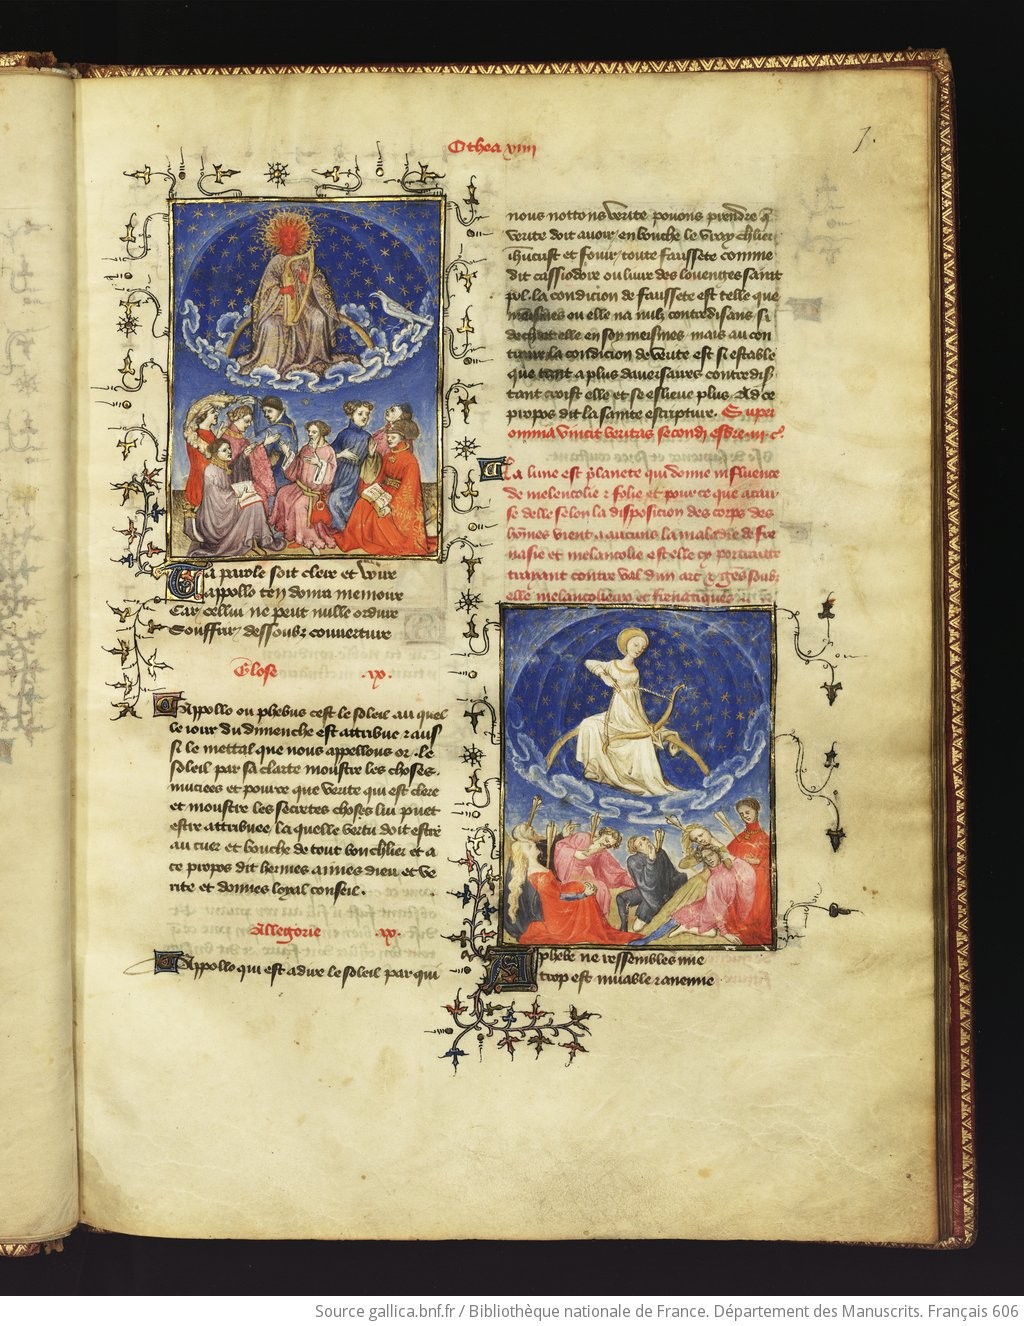 Othea viiii
7.
Ta parole soit clere et vraie
appollo ten donra memoire
Car cellui ne peut nulle ordure
Souffrir dessoubz couverture
Glose .ix.
Appollo ou phebus cest le soleil au quel
le iour du dimenche est attribue et auss
si le mettal que nous appellons or . le
soleil par sa clarte monstre les choses .
muciees et pource que verite qui est clere
et monstre les secretes choses lui puet
estre attribuee, la quelle vertu doit estre
au cuer et bouche de tout bon chlier et a
ce propos dit hermes aimes dieu et ve
rite et donnes loyal conseil .
Allegorie .ix.
Appollo qui est a dire le soleil par qui
nous nottons verite povons prendre q̄
verite doit avoir en bouche le vray chlier
ih̄ucrist et fouir toute faussete comme
dit cassiodore ou livre des louenges saint
pol . la condicion de faussete est telle que
meismes ou elle na nulz contredisans si
dechiet elle en soy meismes mais au con
traire la condicion de verite est si estable
que tant a plus daversaires contredis
tant croist elle et se eslieve plus . Ad ce
propos dit la sainte escripture . Super
omnia vincit veritas secondi esdre . iii . c̄ .
La lune est planete qui donne influence
de melencolie et folie et pour ce que a cau
se delle selon la disposition des corps des
hōmes vient a aucuns la maladie de fre
nasie et melancolie est elle cy pourtraite
traiant contre val dun arc et gens soubz
elle melancolieux et frenatiques
Phebe ne ressembles mie
trop est muable et anemie
Source gallica.bnf.fr / Bibliothèque nationale de France. Département des Manuscrits. Français 606